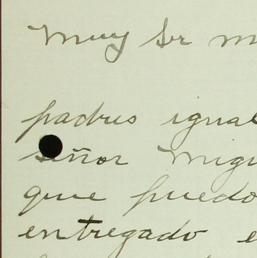 Muy Sr m
padres igual
señor Migu
que puedo
entregado e